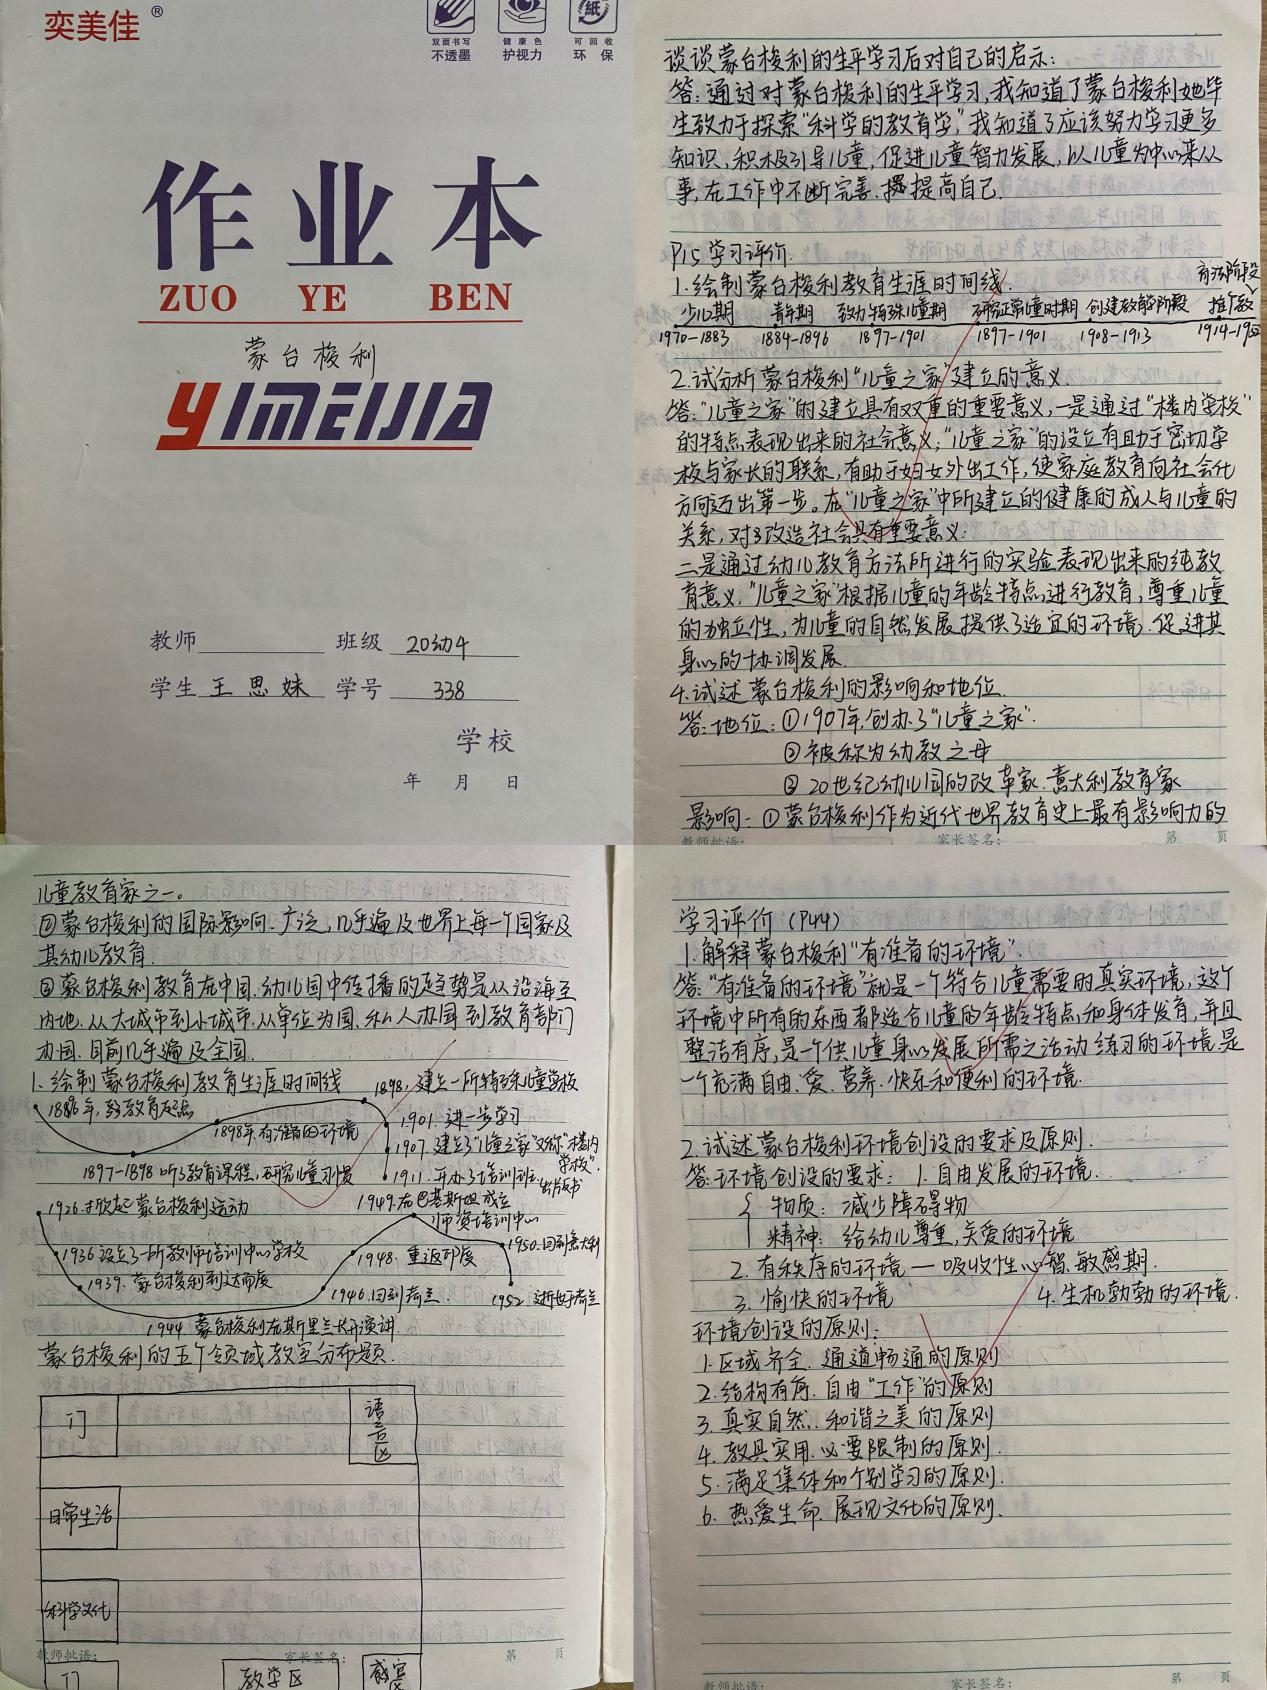 奕美佳®
双面书写
不透墨
健康色
护视力
紙
可回收
环保
作业本
ZUO YE BEN
蒙台梭利
YIMEIJIA
教师 班级 20幼4
学生 王思妹 学号 338
学校
年 月 日
谈谈蒙台梭利的生平学习后对自己的启示:
答:通过对蒙台梭利的生平学习,我知道了蒙台梭利她毕
生致力于探索“科学的教育学”,我知道了应该努力学习更多
知识、积极引导儿童,促进儿童智力发展,以儿童为中心来从
事,在工作中不断完善、提高自己.
P15 学习评价.
1.绘制蒙台梭利教育生涯时间线.
少儿期 青年期 致力特殊儿童期 研究正常儿童时期 创建教育阶段 推广教
育法阶段
1970-1883 1884-1896 1897-1901 1897-1901 1908-1913 1914-1952
2.试分析蒙台梭利“儿童之家”建立的意义.
答:“儿童之家”的建立具有双重的重要意义,一是通过“楼内学校”
的特点表现出来的社会意义;“儿童之家”的设立有助于密切学
校与家长的联系,有助于妇女外出工作,使家庭教育向社会化
方向迈出第一步。在“儿童之家”中所建立的健康的成人与儿童的
关系,对于改造社会具有重要意义:
二是通过幼儿教育方法所进行的实验表现出来的纯教
育意义.“儿童之家”根据儿童的年龄特点进行教育,尊重儿童
的独立性,为儿童的自然发展提供了适宜的环境.促进其
身心的协调发展.
4.试述蒙台梭利的影响和地位.
答:地位:①1907年,创办了“儿童之家”.
②被称为幼教之母
③20世纪幼儿园的改革家.意大利教育家
影响:①蒙台梭利作为近代世界教育史上最有影响力的
教师批语: 家长签名: 第 页
儿童教育家之一。
②蒙台梭利的国际影响.广泛,几乎遍及世界上每一个国家及
其幼儿教育.
③蒙台梭利教育在中国.幼儿园中传播的趋势是从沿海至
内地.从大城市到小城市.从单位为园.私人办园到教育部门
办园.目前几乎遍及全国.
1.绘制蒙台梭利教育生涯时间线
1898,建立一所特殊儿童学校
1898年,有准备的环境
1901.进一步学习
1907.建立了“儿童之家”又称“楼内
学校”.
1897-1898 听了教育课程,研究儿童习惯
1911.开办了培训班.出版书
1949.在巴基斯坦成立
师资培训中心
1926.掀起蒙台梭利运动
1950.回到意大利
1936.设立了一所教师培训中心学校
1948.重返印度
1939.蒙台梭利到达印度
1946.回到荷兰
1952.逝世于荷兰
1944.蒙台梭利在斯里兰卡开演讲.
蒙台梭利的五个领域教室分布题.
门
语言区
日常生活
科学文化
教师批语: 家长签名: 第 页
门 教学区 感官
学习评价(P44)
1.解释蒙台梭利“有准备的环境”.
答:“有准备的环境”就是一个符合儿童需要的真实环境,这个
环境中所有的东西都适合儿童的年龄特点和身体发育,并且
整洁有序,是一个供儿童身心发展所需之活动练习的环境.是
一个充满自由、爱、营养、快乐和便利的环境.
2.试述蒙台梭利环境创设的要求及原则.
答:环境创设的要求:1.自由发展的环境.
物质:减少障碍物
精神:给幼儿尊重,关爱的环境
2.有秩序的环境—吸收性心智.敏感期.
3.愉快的环境 4.生机勃勃的环境.
环境创设的原则:
1.区域齐全.通道畅通的原则
2.结构有序.自由“工作”的原则
3.真实自然.和谐之美的原则
4.教具实用.必要限制的原则.
5.满足集体和个别学习的原则.
6.热爱生命.展现文化的原则.
教师批语: 家长签名: 第 页